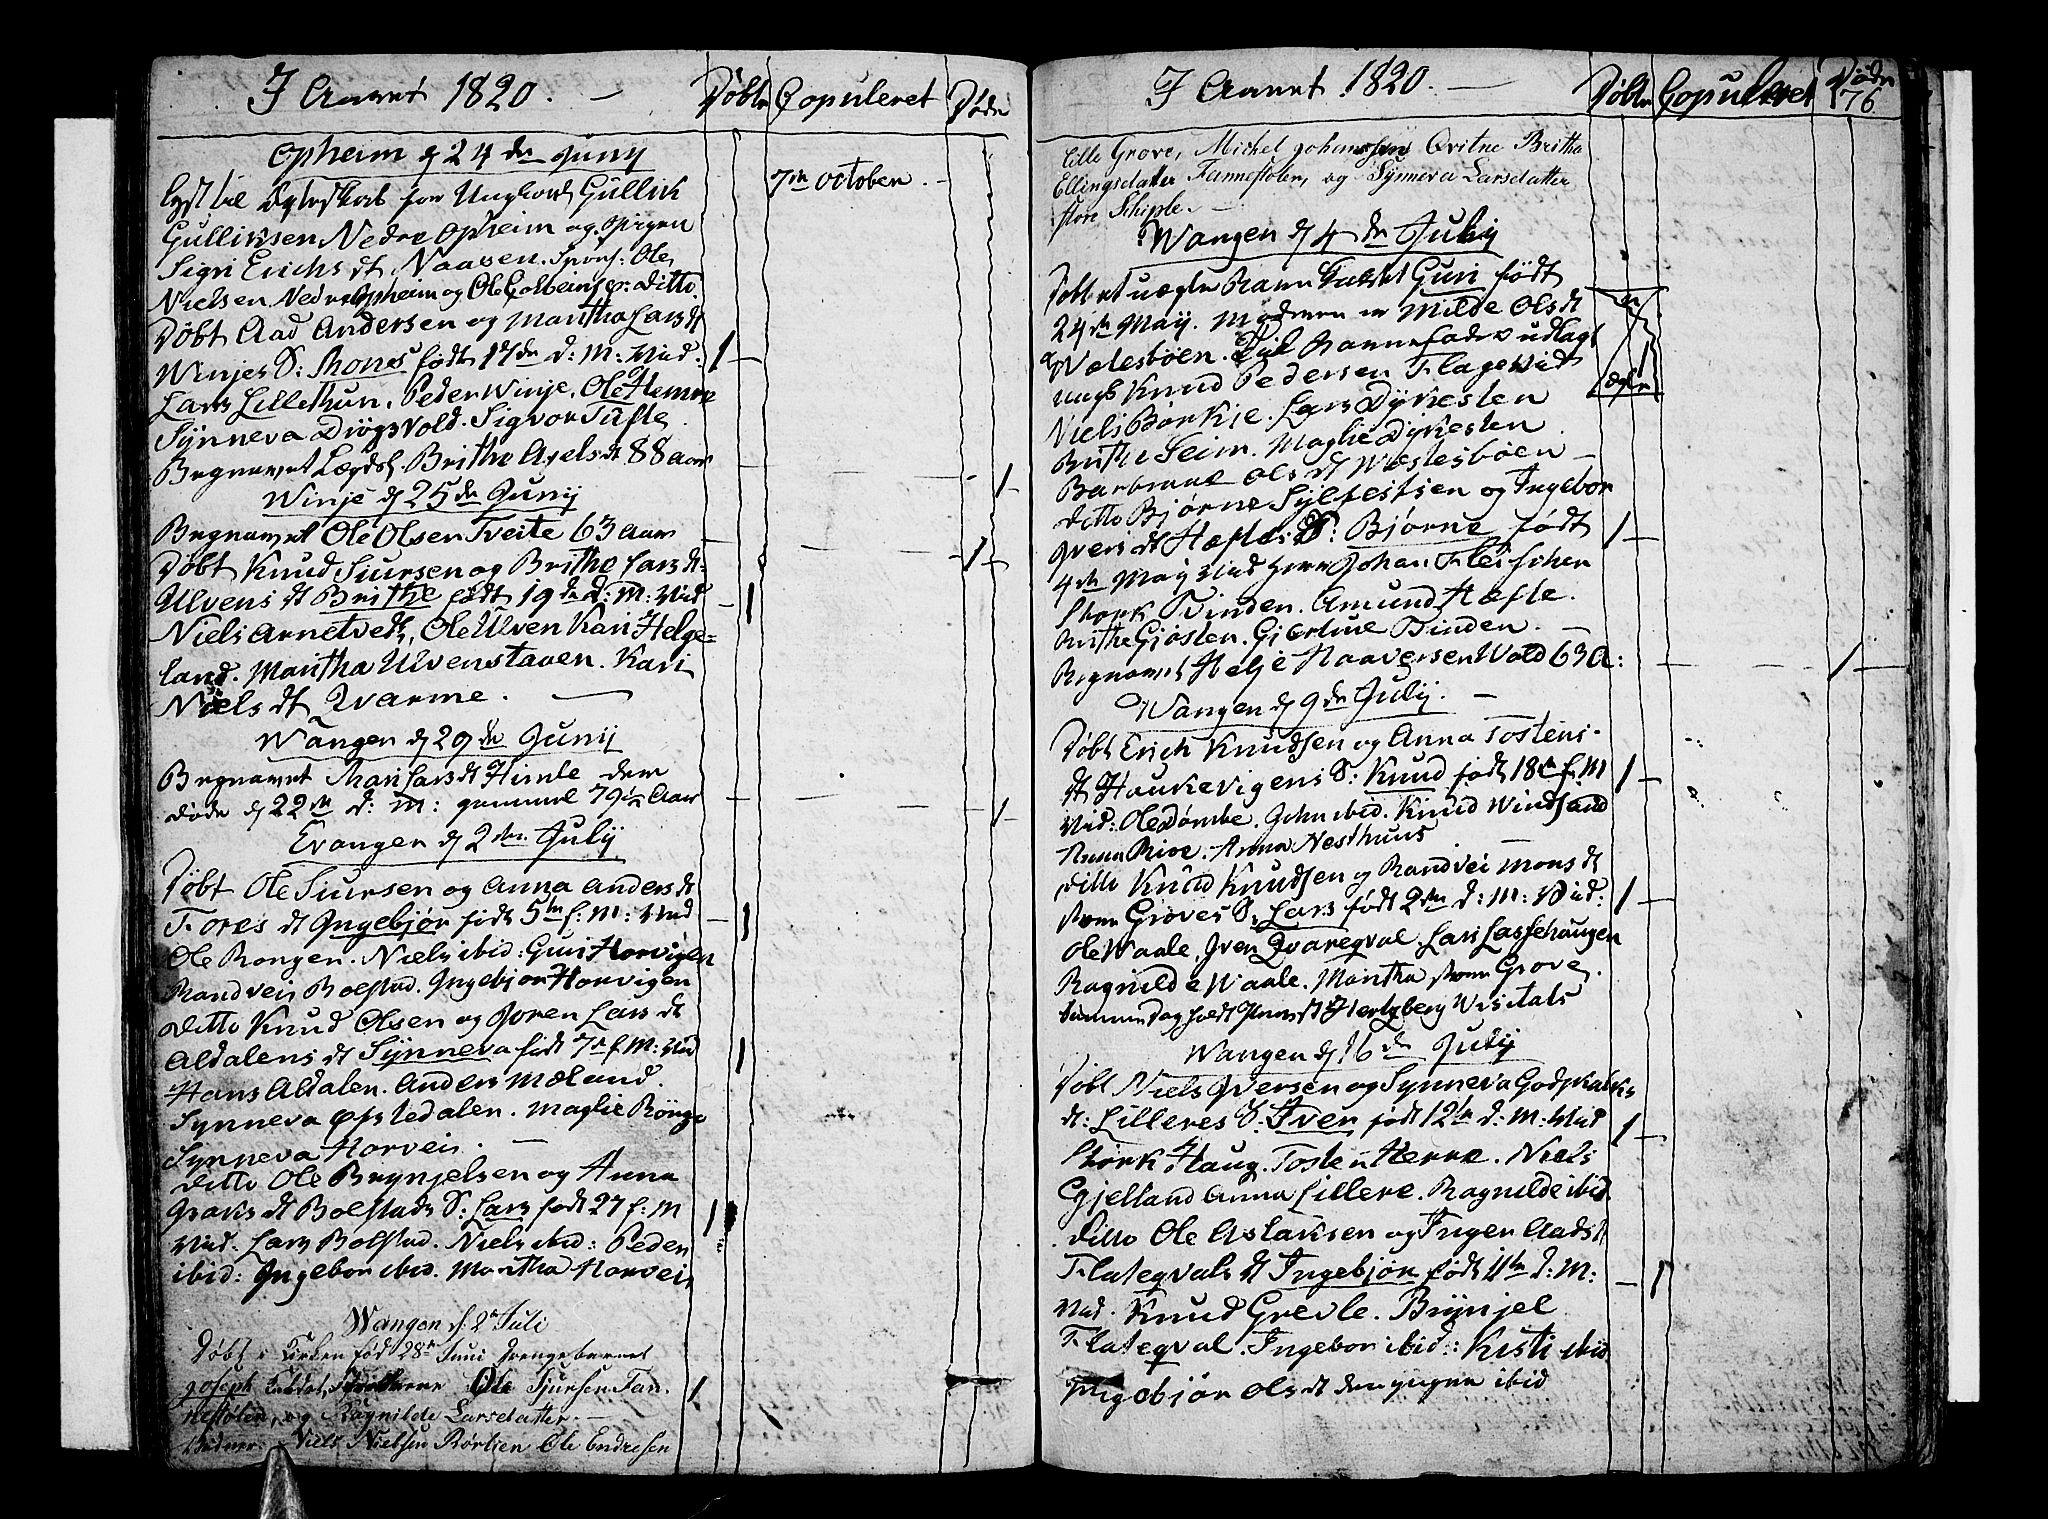 I Aaret 1820. — Døbte Copuleret Døde
Opheim d 24de Juny
Lyst til Ægteskab for Ungkarl Gullik 7de October.
Gulliksen Nedre Opheim og Pigen
Sigri Erichs dt Naaven. Spons: Ole
Nielsen Nedre Opheim og Ole ditto.
Døbt Aad Andersen og Maritha Lars dt
Winjes S: Mons født 17de d: M: Vid: 1
Lars Lillethun, Peder Winje, Ole Hemre
Synneva Drøgsvold. Sigvor Tufte
Begravet Lægdsl. Brithe Axels dt 88 aar 1
Winje d 25de Juny
Begravet Ole Olsen Tveite 63 aar 1
Døbt Knud Siursen og Brithe Lars dt
Ulvens dt Brithe født 19de d: M: Vid 1
Niels Arnetvedt, Ole Ulven Kari Helge=
land. Maritha Ulvenstaven. Kari
Niels dt Qvarme.
Wangen d 29de Juny
Begravet Mari Lars dt Himle dem
døde d 22de d: M: gammel 79½ Aar 1
Evangen d 2den July
Døbt Ole Siursen og Anna Anders dt
Fores dt Ingebjør født 5te f: M: Vid 1
Ole Rongen. Niels ibid: Guri Horvigen
Randveis Bolstad. Ingebjør Horvigen
ditto Knud Olsen og Joren Lars dt
Aldalens dt Synneva født 7de f: M: Vid 1
Hans Aldalen. Anders Mæland.
Synneva Øfstedalen. Maglie Rønge
Synneva Horvei.
ditto Ole Brynjelsen og Anna
Isaks dt Bolstads S: Lars født 27 f: M 1
Vid: Lars Bolstad. Niels ibid: Peder
ibid: Ingebor ibid. Maritha Horveis
Wangen d: 2de Juli
Døbt i Kirken fød 28de Juni Drengebarnet
Joseph kaldet, Forældrene Ole Sjursen Fan- 1
nestølen, og Ragnilde Larsdatter.
Vidner: Niels Nielsen Rørlien Ole Endresen
I Aaret 1820. — Døbte Copuleret Døde
76
Lille Grove, Michel Johannesen Qvitne Britha
Ellingsdatter Fannestølen, og Synneva Larsdatter
store Schiple.
Wangen d 4de July
Døbt et uægte Barn kaldet Guri født
24de May. Moderen er Milde Ols dt u
Wælesbøen. Til Barnefader udlagt 1
ungk Knud Pedersen Flage Vid ægte
Niels Børkje. Lars Dykesten
Brithe Seim. Maglie Dykesten
Barbraae Ols dt Wæstesbøen
ditto Bjørne Sylfestsen og Ingebor
Iveris dt Hæfte S: Bjørne født 1
4de May Vid Herr Johan Fleischer
Stork Tvinden. Amund Hæfte.
Brithe Gjøsten. Giertrue Tvinden.
Begravet Helje Haaversen Wold 63 a: 1
Wangen d 9de July.
Døbt Erich Knudsen og Anna Tostens-
dt Haukevigens S: Knud født 18de f: M 1
Vid: Ole Dømbe. John ibid. Knud Windsand
Anna Rive. Anna Nesthuus
ditto Knud Knudsen og Randvei Mons dt
store Groves S: Lars født 2den d: M: Vid: 1
Ole Waale. Iver Qvareqval. Lars Lassehaugen
Ragnilde Waale. Maritha store Grove.
samme Dag holdt Provst Hertzberg Visitats
Wangen d 16de July
Døbt Niels Iversen og Synneva Godskalks
dt: Lilleres S: Iver født 12te d: M: Vid 1
Størk Haug. Tosten Herre. Niels
Gjelland Anna Lillere. Ragnilde ibid.
ditto Ole Aslaksen og Inger Aads dt
Flateqvals dt Ingebjør født 11te d: M: 1
Vid. Knud Grevle. Brynjel
Flateqval. Ingebor ibid: Kisti ibid
Ingebjør Ols dt den yngre ibid